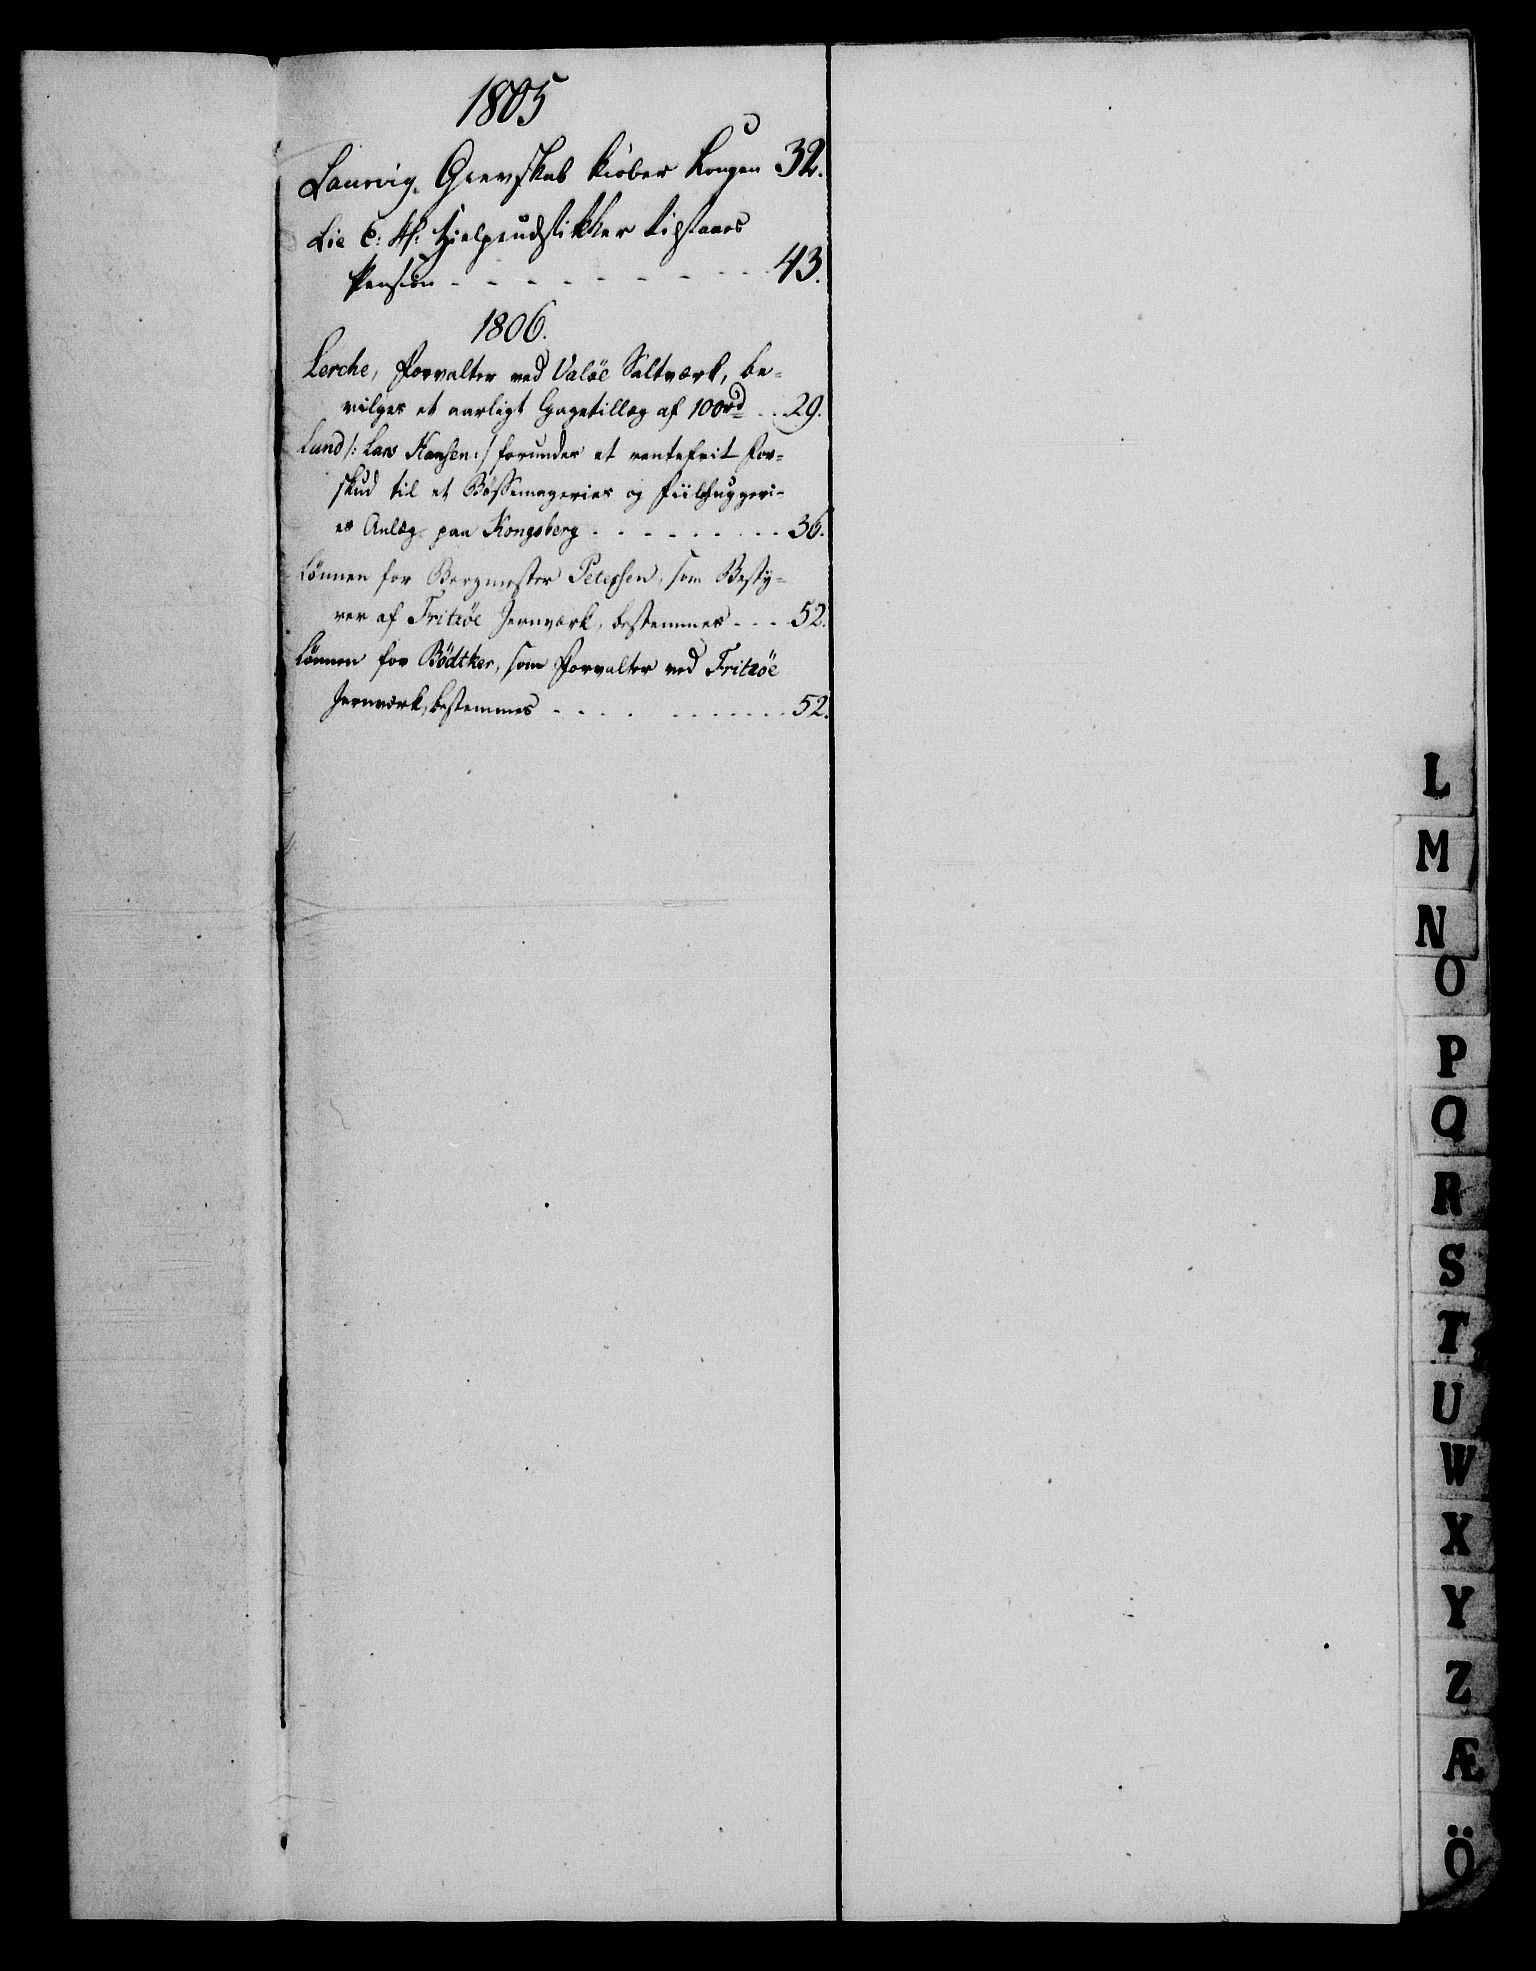 1805
Laurvig Grevskab kiöber Kongen 32.
Lie C: H: Hielpeudstikker tilstaaes
Pension - - - - - - - - 43.
1806.
Lerche, Forvalter ved Valöe Saltværk, be-
vilges et aarligt Gagetillæg af 100 rd - - 29.
Lund /: Lars Hansen :/ forundes et rentefrit For-
skud til et Bössemageries og Fiilhuggeri-
es Anlæg paa Kongsberg - - - - - - - - 36.
Lönnen for Bergmester Petersen, som Besty-
rer af Fritzöe Jernværk, bestemmes - - - 52.
Lönnen for Bödtker, som Forvalter ved Fritzöe
Jernværk, bestemmes - - - - - - - - - - 52.
L
M
N
O
P
Q
R
S
T
U
W
X
Y
Z
Æ
Ö